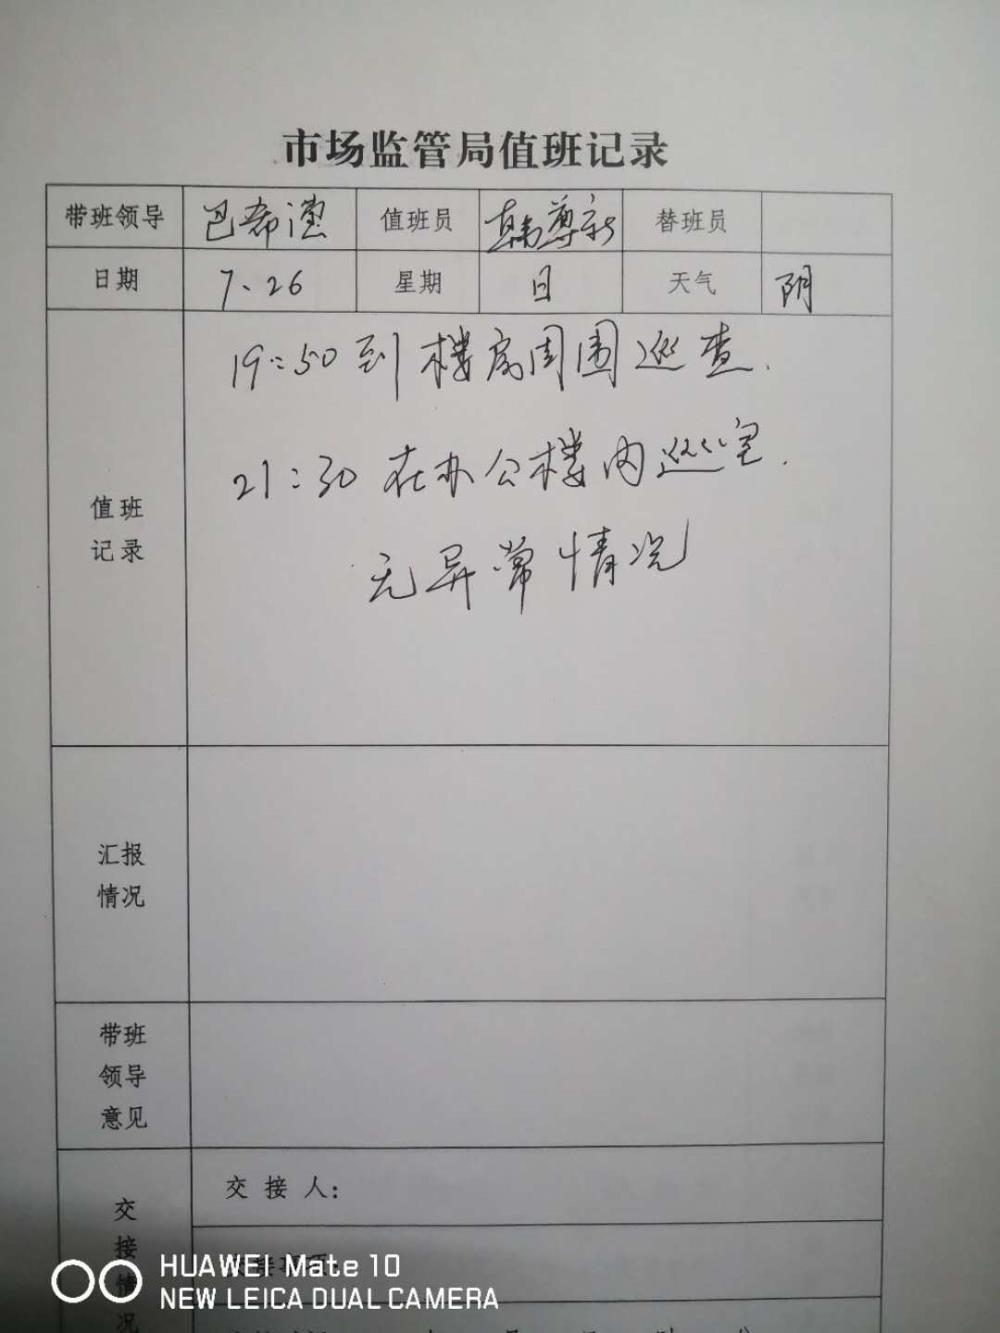 市场监管局值班记录
带班领导 巴希 值班员 韩尊新 替班员
日期 7、26 星期 日 天气 阴
19:50到楼房周围巡查.
21:30在办公楼内巡室.
无异常情况
值班
记录
汇报
情况
带班
领导
意见
交接情况
交接人:
HUAWEI Mate 10
NEW LEICA DUAL CAMERA